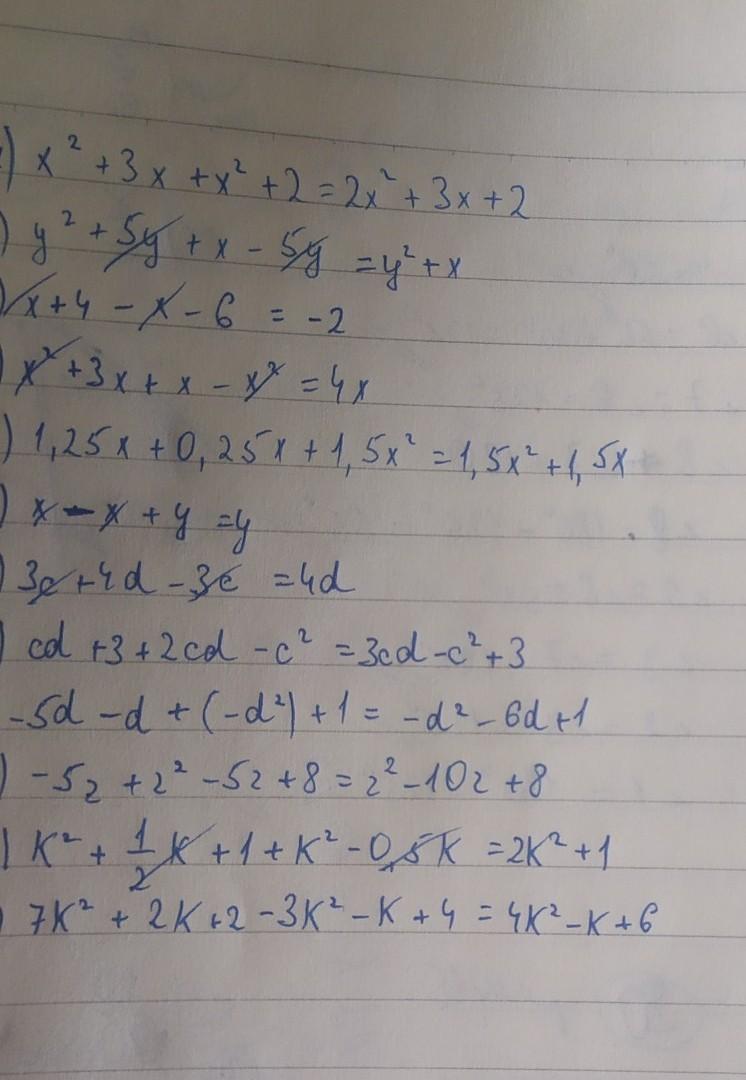 ) x² + 3x + x² + 2 = 2x² + 3x + 2
) y² + 5y + x - 5y = y² + x
) x + 4 - x - 6 = -2
) x² + 3x + x - x² = 4x
) 1,25x + 0,25x + 1,5x² = 1,5x² + 1,5x
) x - x + y = y
) 3c + 4d - 3c = 4d
) cd + 3 + 2cd - c² = 3cd - c² + 3
-5d - d + (-d²) + 1 = -d² - 6d + 1
) -5z + z² - 5z + 8 = z² - 10z + 8
) K² + 1/2 K + 1 + K² - 0,5K = 2K² + 1
) 7K² + 2K + 2 - 3K² - K + 4 = 4K² - K + 6